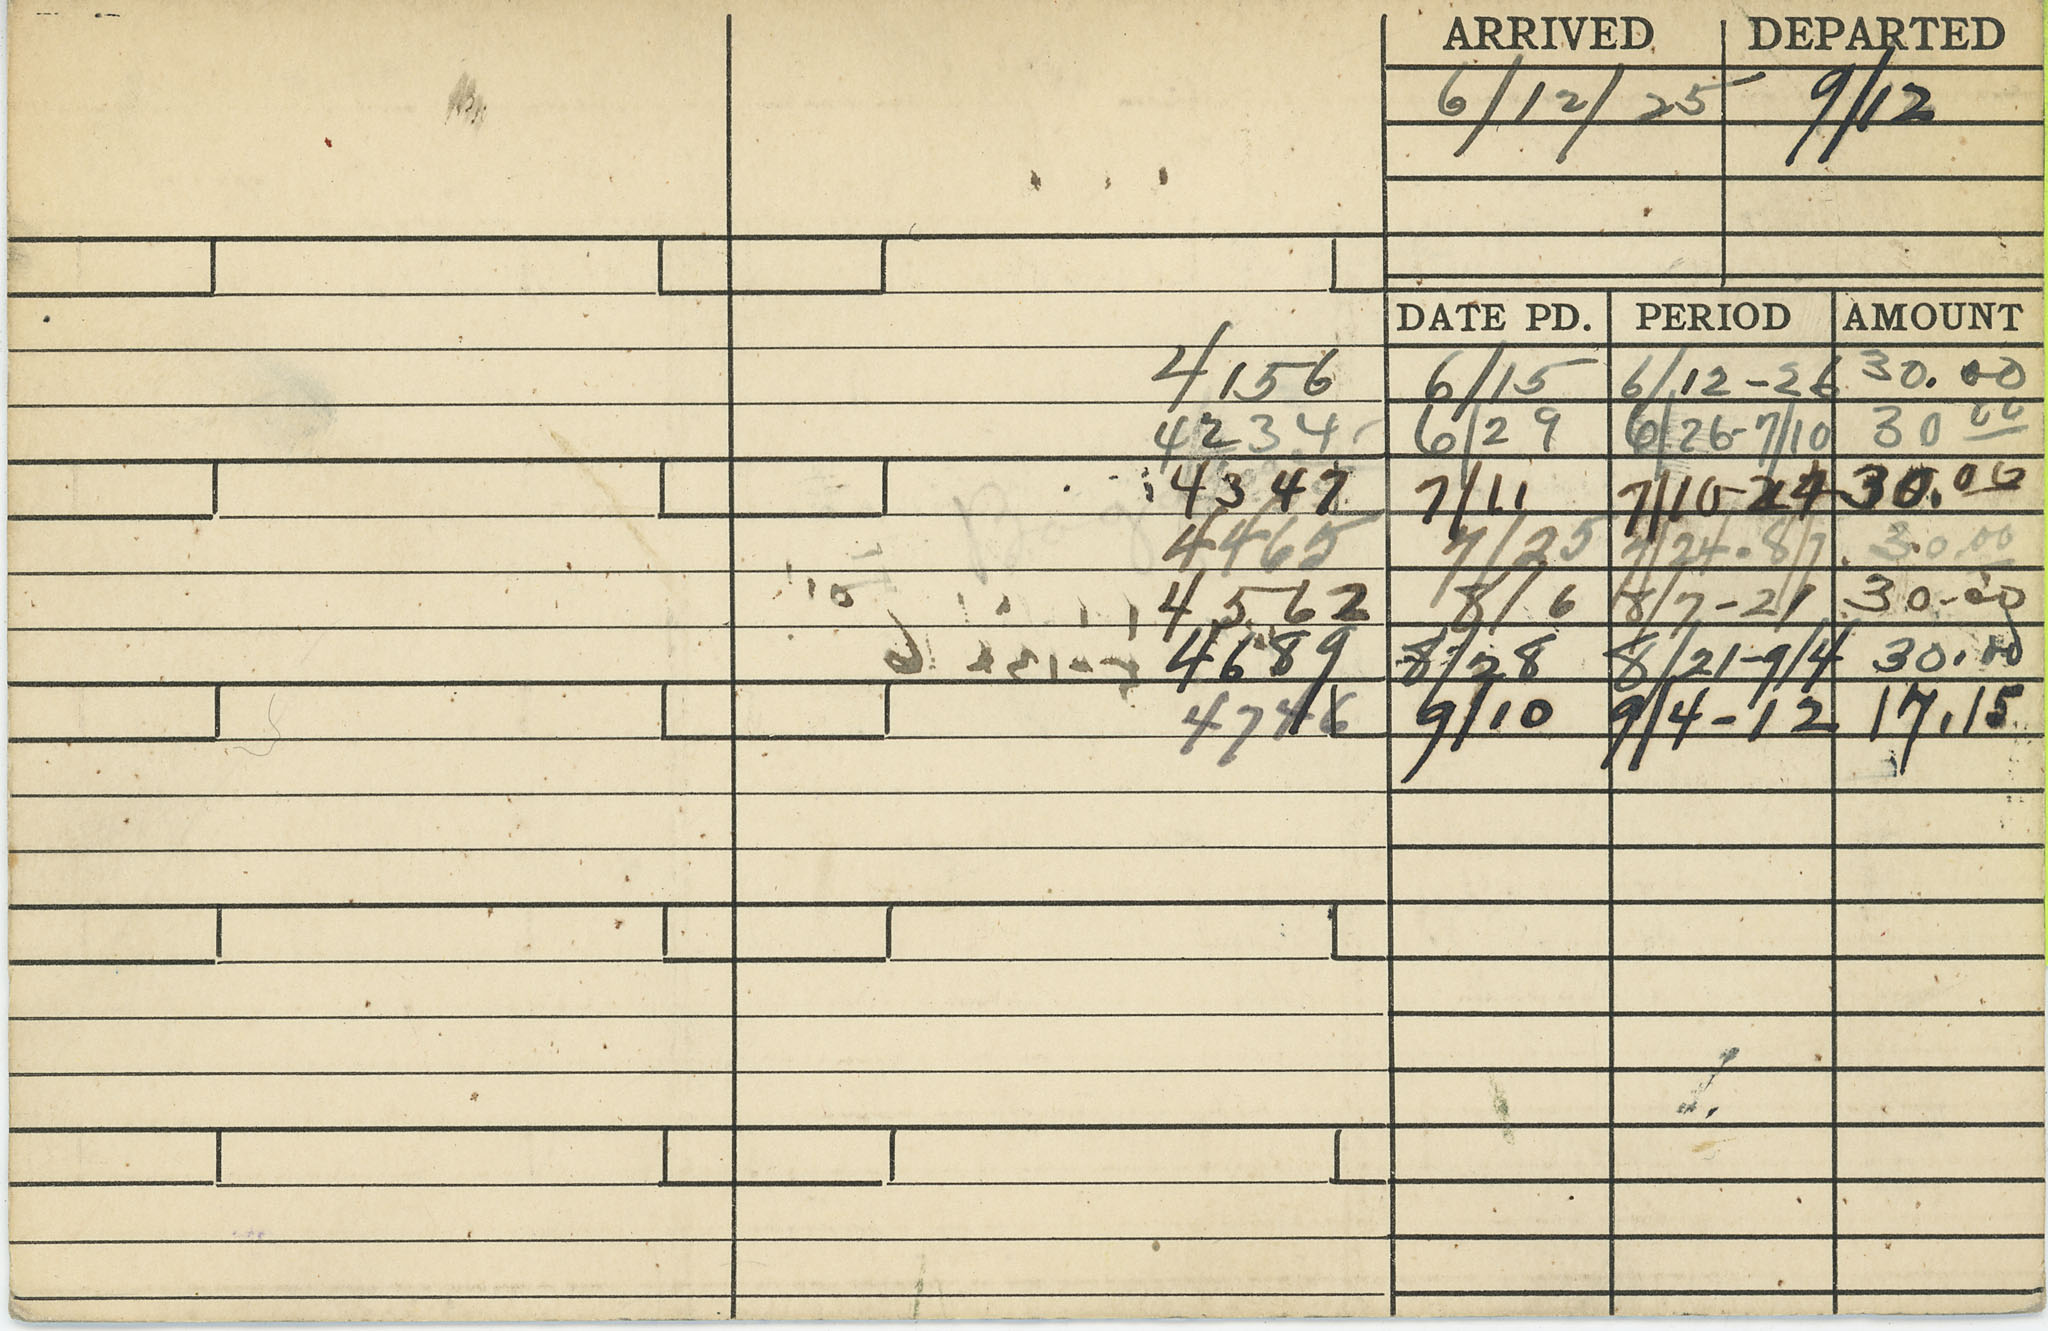 ARRIVED DEPARTED
6/12/25 9/12
DATE PD. PERIOD AMOUNT
4156 6/15 6/12-26 30.00
4234 6/29 6/26-7/10 30 00
4347 7/11 7/10-24 30.00
4465 7/25 7/24-8/7 30.00
4562 8/6 8/7-21 30.00
4689 8/28 8/21-9/4 30.00
4746 9/10 9/4-12 17.15